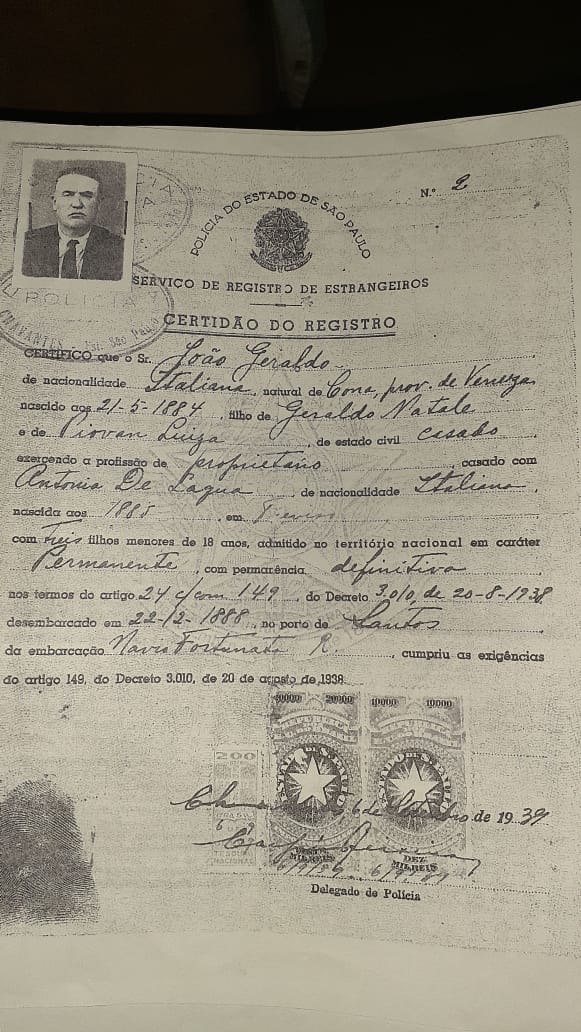 POLÍCIA DO ESTADO DE SÃO PAULO
N.º 2
POLICIA
CHAVANTES - Est. São Paulo
SERVIÇO DE REGISTRO DE ESTRANGEIROS
CERTIDÃO DO REGISTRO
CERTIFICO que o Sr. João Geraldo
de nacionalidade Italiana, natural de Cona, prov. de Veneza
nascido aos 21-5-1884, filho de Geraldo Natale
e de Piovan Luiza, de estado civil casado
exercendo a profissão de proprietario, casado com
Antonia De Lagua, de nacionalidade Italiana,
nascida aos 1885, em
com Treis filhos menores de 18 anos, admitido no território nacional em caráter
Permanente, com permarência definitiva
nos termos do artigo 24 c/com 149, do Decreto 3.010, de 20-8-1938
desembarcado em 22-12-1888, no porto de Santos
da embarcação Navio Fortunata R., cumpriu as exigências
do artigo 149, do Decreto 3.010, de 20 de agosto de 1938.
20000 20000 10000 10000
200
BRASIL
MILREIS
DEZ MILREIS
6 de de 1939
6/9/39 6/9/39
Delegado de Polícia